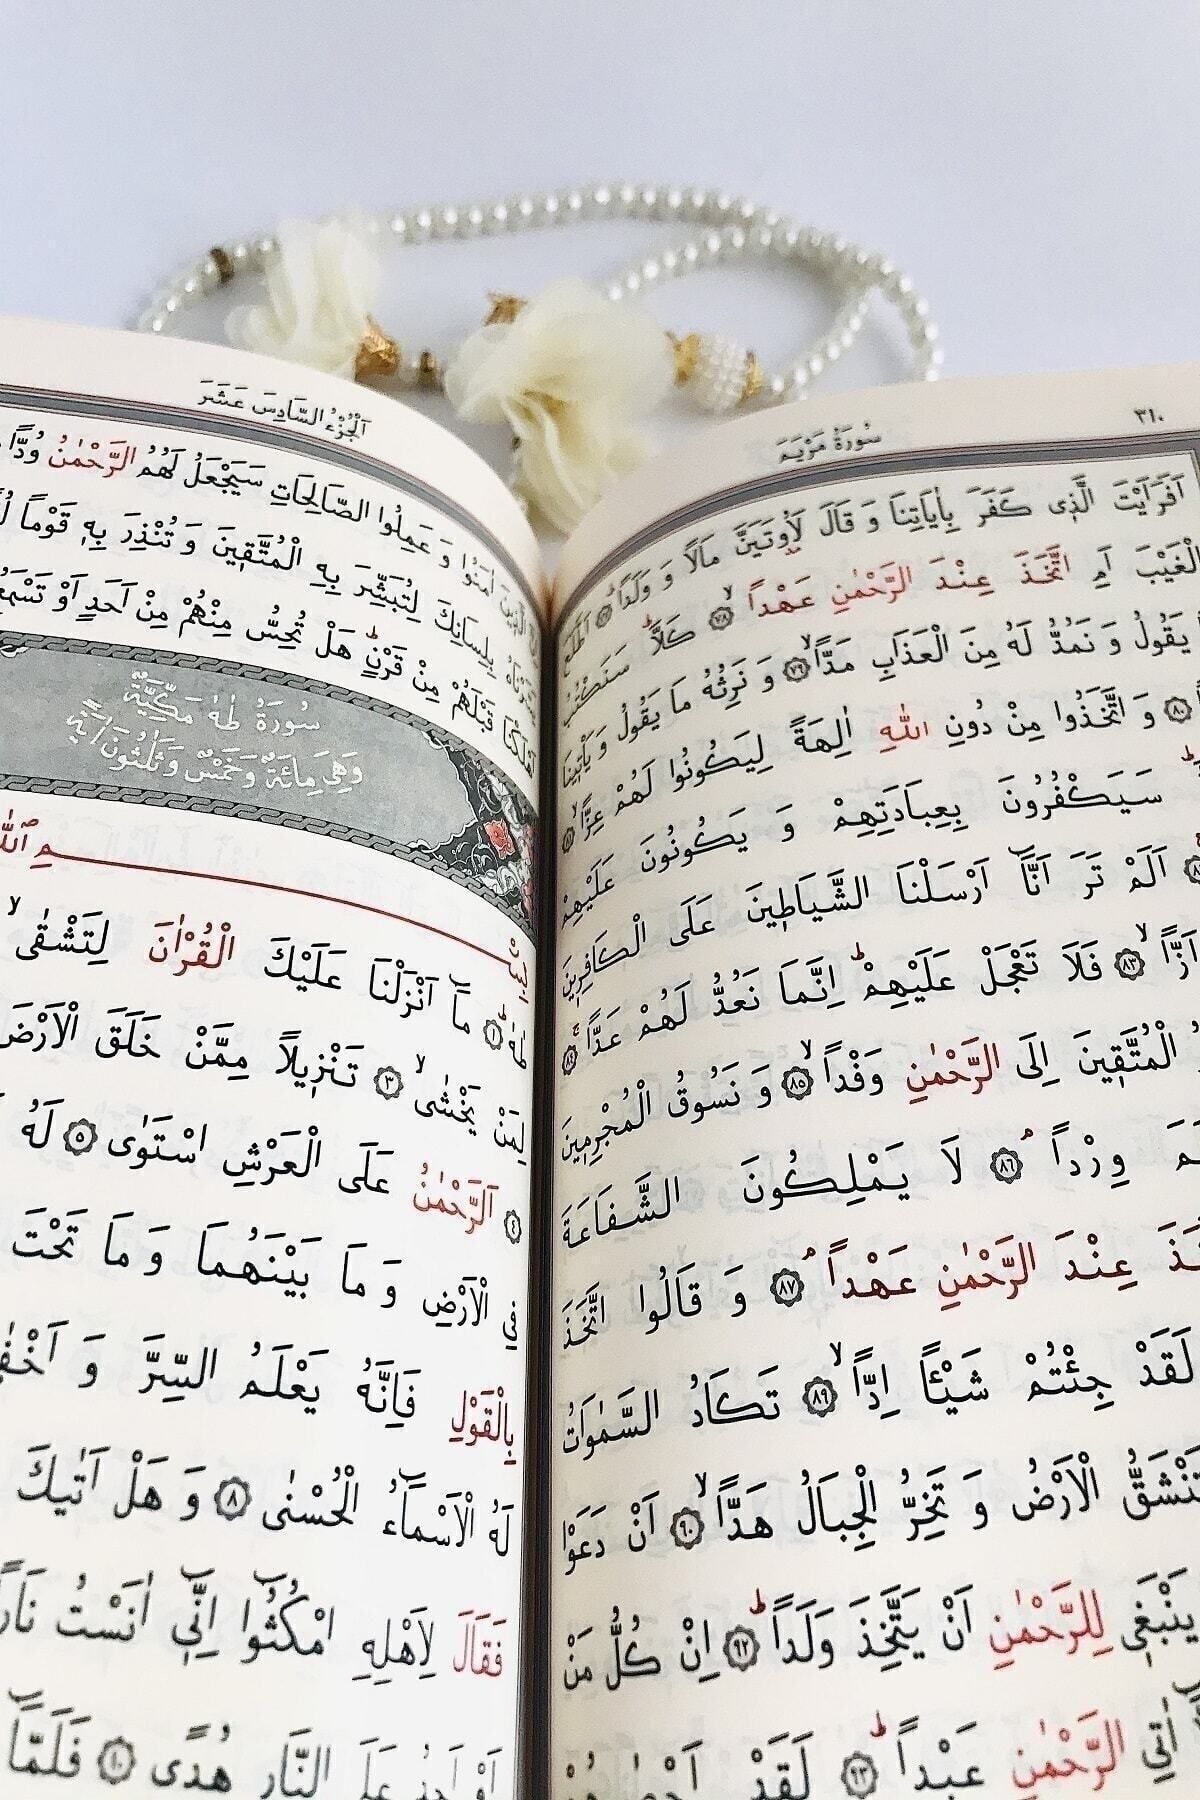 ٣١٠
سُورَةُ مَرْيَمَ
اَفَرَاَيْتَ الَّذٖى كَفَرَ بِاٰيَاتِنَا وَ قَالَ لَاُوتَيَنَّ مَالًا وَ وَلَدًاؕ ﴿٧٧﴾ اَطَّلَعَ
الْغَيْبَ اَمِ اتَّخَذَ عِنْدَ الرَّحْمٰنِ عَهْدًاۙ ﴿٧٨﴾ كَلَّاؕ سَنَكْتُبُ
يَقُولُ وَ نَمُدُّ لَهُ مِنَ الْعَذَابِ مَدًّاۙ ﴿٧٩﴾ وَ نَرِثُهُ مَا يَقُولُ وَ يَاْتٖينَا
﴿٨٠﴾ وَ اتَّخَذُوا مِنْ دُونِ اللّٰهِ اٰلِهَةً لِيَكُونُوا لَهُمْ عِزًّاۙ ﴿٨١﴾
سَيَكْفُرُونَ بِعِبَادَتِهِمْ وَ يَكُونُونَ عَلَيْهِمْ
اَلَمْ تَرَ اَنَّٓا اَرْسَلْنَا الشَّيَاطٖينَ عَلَى الْكَافِرٖينَ
اَزًّاۙ ﴿٨٣﴾ فَلَا تَعْجَلْ عَلَيْهِمْؕ اِنَّمَا نَعُدُّ لَهُمْ عَدًّاۚ ﴿٨٤﴾
الْمُتَّقٖينَ اِلَى الرَّحْمٰنِ وَفْدًاۙ ﴿٨٥﴾ وَ نَسُوقُ الْمُجْرِمٖينَ
وِرْدًاۢ ﴿٨٦﴾ لَا يَمْلِكُونَ الشَّفَاعَةَ
عِنْدَ الرَّحْمٰنِ عَهْدًاۢ ﴿٨٧﴾ وَ قَالُوا اتَّخَذَ
لَقَدْ جِئْتُمْ شَيْـًٔا اِدًّاۙ ﴿٨٩﴾ تَكَادُ السَّمٰوَاتُ
تَنْشَقُّ الْاَرْضُ وَ تَخِرُّ الْجِبَالُ هَدًّاۙ ﴿٩٠﴾ اَنْ دَعَوْا
يَنْبَغٖى لِلرَّحْمٰنِ اَنْ يَتَّخِذَ وَلَدًاؕ ﴿٩٢﴾ اِنْ كُلُّ مَنْ
اٰتِى الرَّحْمٰنِ عَبْدًاؕ ﴿٩٣﴾ لَقَدْ اَحْصٰيهُمْ
اَلْجُزْءُ السَّادِسَ عَشَرَ
اِنَّ الَّذٖينَ اٰمَنُوا وَ عَمِلُوا الصَّالِحَاتِ سَيَجْعَلُ لَهُمُ الرَّحْمٰنُ وُدًّا
بِلِسَانِكَ لِتُبَشِّرَ بِهِ الْمُتَّقٖينَ وَ تُنْذِرَ بِهٖ قَوْمًا
اَهْلَكْنَا قَبْلَهُمْ مِنْ قَرْنٍؕ هَلْ تُحِسُّ مِنْهُمْ مِنْ اَحَدٍ اَوْ تَسْمَعُ
سُورَةُ طٰهٰ مَكِّيَّةٌ
وَهِىَ مِائَةٌ وَ خَمْسٌ وَ ثَلٰثُونَ اٰيَةً
بِسْمِ اللّٰهِ
طٰهٰؕ ﴿١﴾ مَٓا اَنْزَلْنَا عَلَيْكَ الْقُرْاٰنَ لِتَشْقٰىۙ
لِمَنْ يَخْشٰىۙ ﴿٣﴾ تَنْزٖيلًا مِمَّنْ خَلَقَ الْاَرْضَ
﴿٤﴾ اَلرَّحْمٰنُ عَلَى الْعَرْشِ اسْتَوٰى ﴿٥﴾ لَهُ
فِى الْاَرْضِ وَ مَا بَيْنَهُمَا وَ مَا تَحْتَ
بِالْقَوْلِ فَاِنَّهُ يَعْلَمُ السِّرَّ وَ اَخْفٰى
لَهُ الْاَسْمَٓاءُ الْحُسْنٰى ﴿٨﴾ وَ هَلْ اَتٰيكَ
فَقَالَ لِاَهْلِهِ امْكُثُٓوا اِنّٖٓى اٰنَسْتُ نَارًا
اَوْ اَجِدُ عَلَى النَّارِ هُدًى ﴿١٠﴾ فَلَمَّٓا